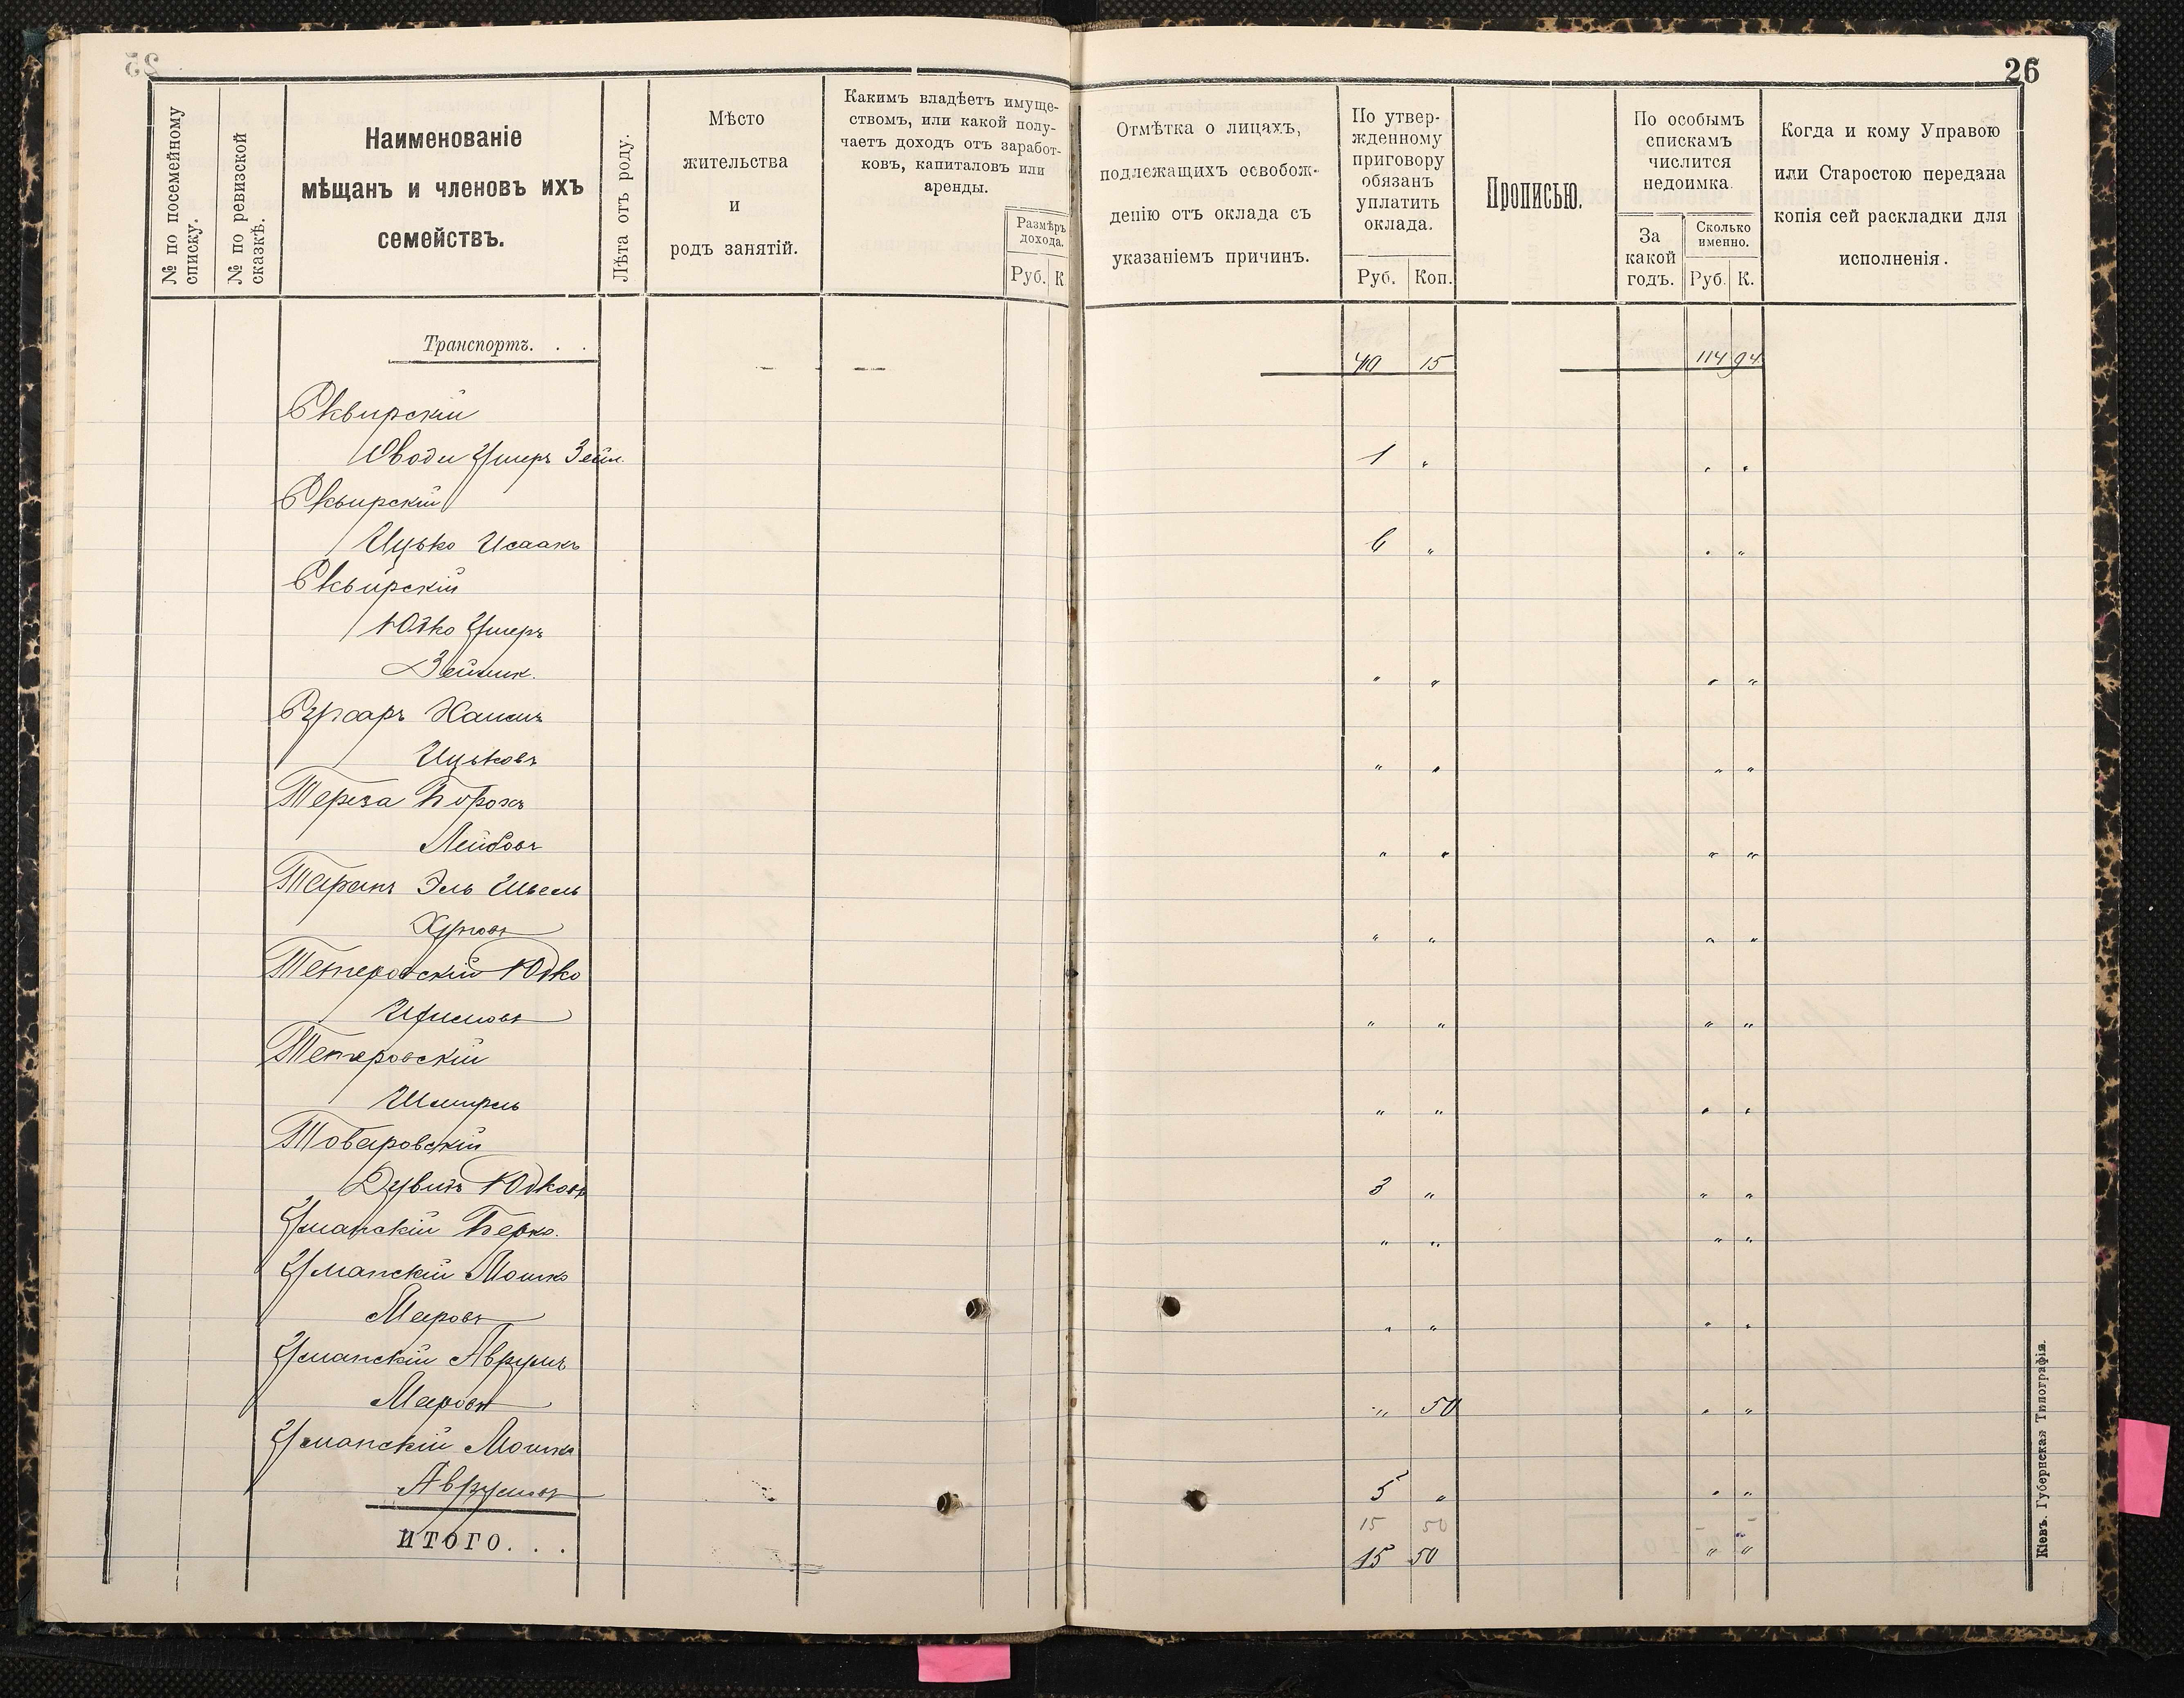 26
№ по посемейному
списку.
№ по ревизской
сказкѣ.
Наименованіе
мѣщанъ и членовъ ихъ
семействъ.
Лѣта отъ роду.
Мѣсто
жительства
и
родъ занятій.
Какимъ владѣетъ имуще-
ствомъ, или какой полу-
чаетъ доходъ отъ заработ-
ковъ, капиталовъ или
аренды.
Размѣръ
дохода.
Руб. К
Отмѣтка о лицахъ,
подлежащихъ освобож-
денію отъ оклада съ
указаніемъ причинъ.
По утвер-
жденному
приговору
обязанъ
уплатить
оклада.
Руб. Коп.
Прописью.
По особымъ
спискамъ
числится
недоимка.
За
какой
годъ.
Сколько
именно.
Руб. К.
Когда и кому Управою
или Старостою передана
копія сей раскладки для
исполненія.
Транспортъ. . . 15 114 94
Сквирскій
Умеръ Зейл. 1 „ „ „
Сквирскій
Ицько Исаакъ 6 „ „ „
Сквирскій
Юдко
„ „ „ „
Хаимъ
Ицьковъ „ „ „ „
Тереза Борохъ
Лейбовъ „ „ „ „
Таранъ Эль
„ „ „ „
Тетеровскій Юдко
„ „ „ „
Тетеровскій
Шмиръ „ „ „ „
Товаровскій
Дувидъ Юдковъ 3 „ „ „
Уманскій Берко. „ „ „ „
Уманскій Мошко
Мееровъ „ „ „ „
Уманскій Аврумъ
Мееровъ „ 50 „ „
Уманскій Мошко
Аврумовъ 5 „ „ „
15 50
ИТОГО. . . 15 50 „ „
Кіевъ. Губернская Типографія.